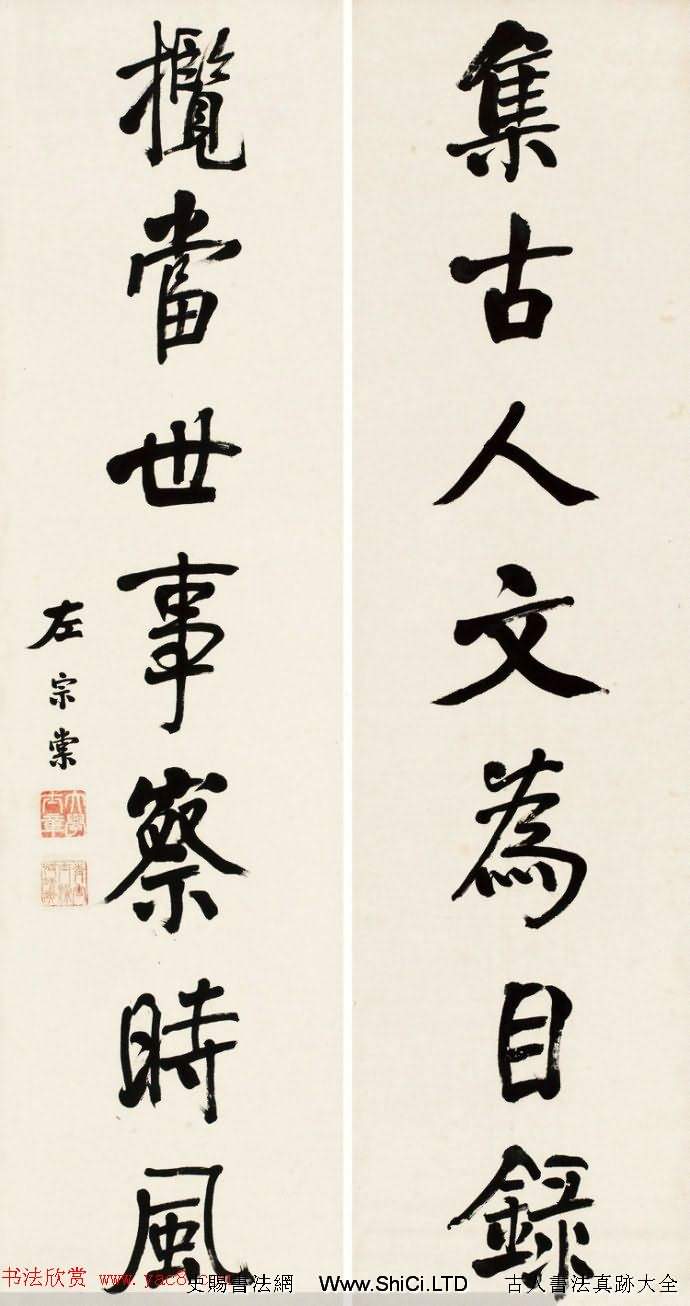 集古人文為目錄
攬當世事察時風
左宗棠
大學士章
书法欣赏 www.yac8.com
史賜書法網 Www.ShiCi.LTD 古人書法真跡大全